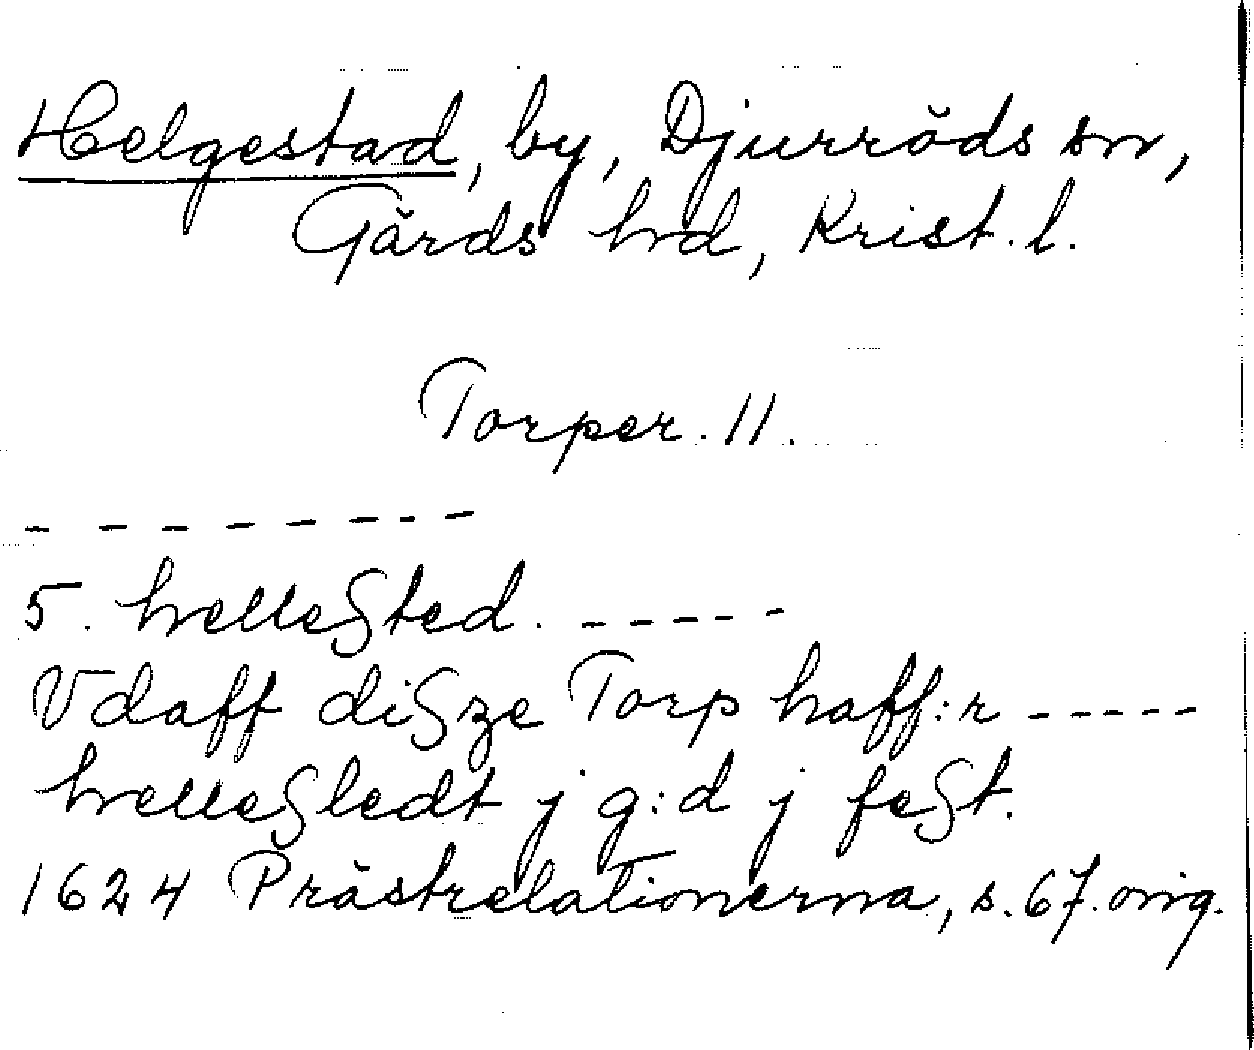 Helgestad, by, Djurröds sn,
Gärds hd, Krist. l.
Torper. 11.
- - - - - - - -
5. helleßted. - - - - -
Vdaff dißze Torp haff:r - - - - -
helleßledt j g:d j feßt.
1624 Prästrelationerna, s. 67. orig.